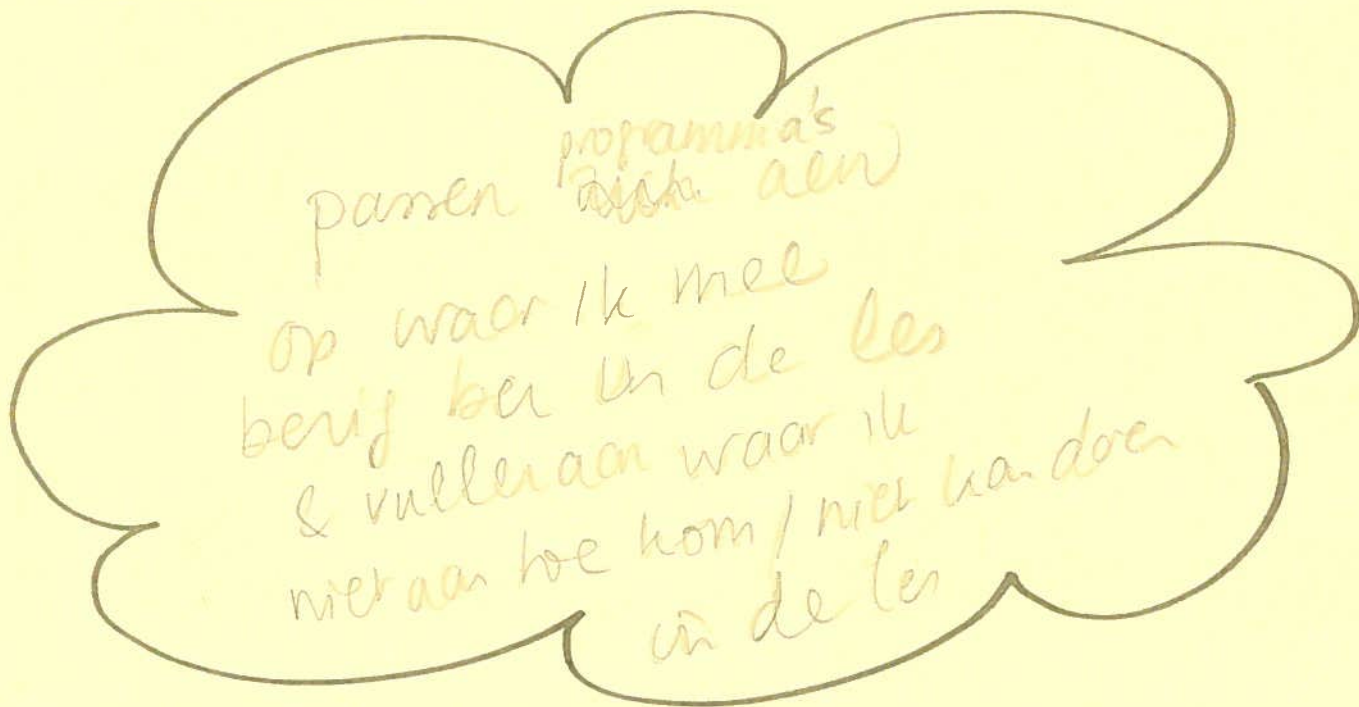 programma's
passen zich aan
op waar ik mee
bezig ben in de les
& vullen aan waar ik
niet aan toe kom / niet kan doen
in de les